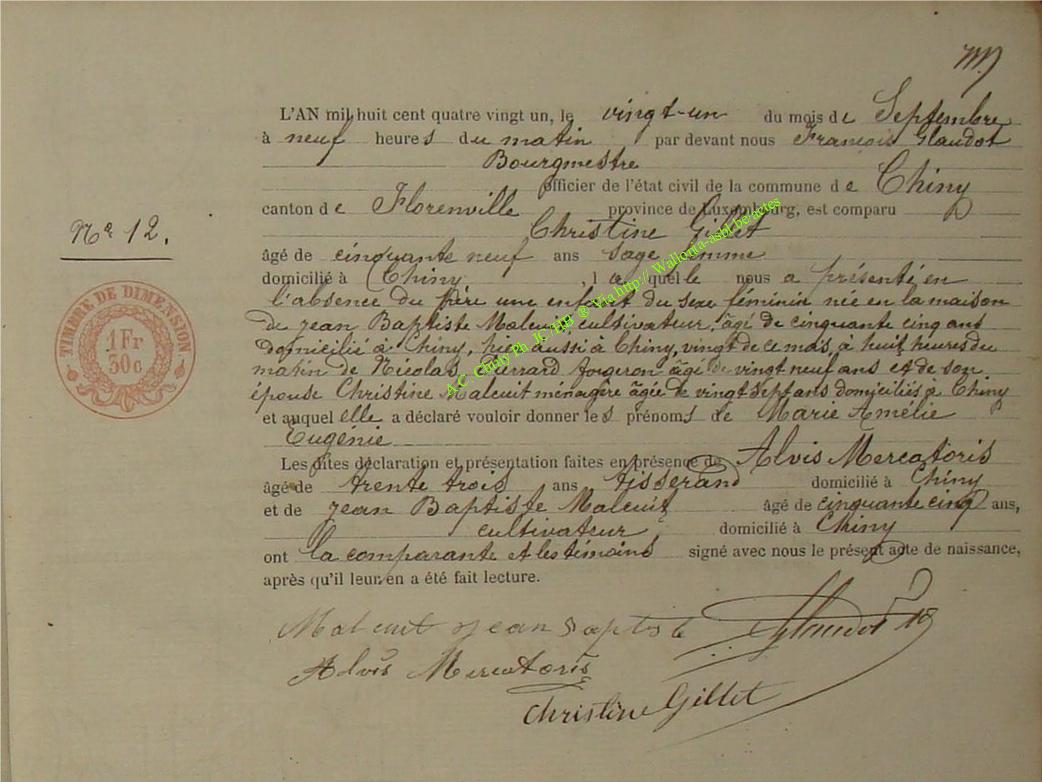 L'AN mil huit cent quatre vingt un, le vingt-un du mois de Septembre
à neuf heures du matin par devant nous François Glaudot
Bourgmestre
officier de l'état civil de la commune de Chiny
canton de Florenville province de Luxembourg, est comparu
Nº 12.
Christine Gillet
âgé de cinquante neuf ans sage femme
domicilié à Chiny, laquelle nous a présenté en
l'absence du père une enfant du sexe féminin née en la maison
de jean Baptiste Maleuit cultivateur, âgé de cinquante cinq ans
domicilié à Chiny, née aussi à Chiny, vingt de ce mois, à huit heures du
matin de Nicolas Pierrard forgeron âgé de vingt neuf ans et de son
épouse Christine Maleuit ménagère âgée de vingt sept ans domiciliés à Chiny
et auquel elle a déclaré vouloir donner les prénoms de Marie Amélie
Eugénie
Les dites déclaration et présentation faites en présence de Alvis Mercatoris
âgé de trente trois ans tisserand domicilié à Chiny
et de jean Baptiste Maleuit âgé de cinquante cinq ans,
cultivateur domicilié à Chiny
ont la comparante et les témoins signé avec nous le présent acte de naissance,
après qu'il leur en a été fait lecture.
Maleuit jean Baptiste Glaudot
Alvis Mercatoris
Christine Gillet
TIMBRE DE DIMENSION.
1 Fr
30c
A.C. Chiny Ph. JC/HB @ Via http://Wallonia-asbl.be/actes